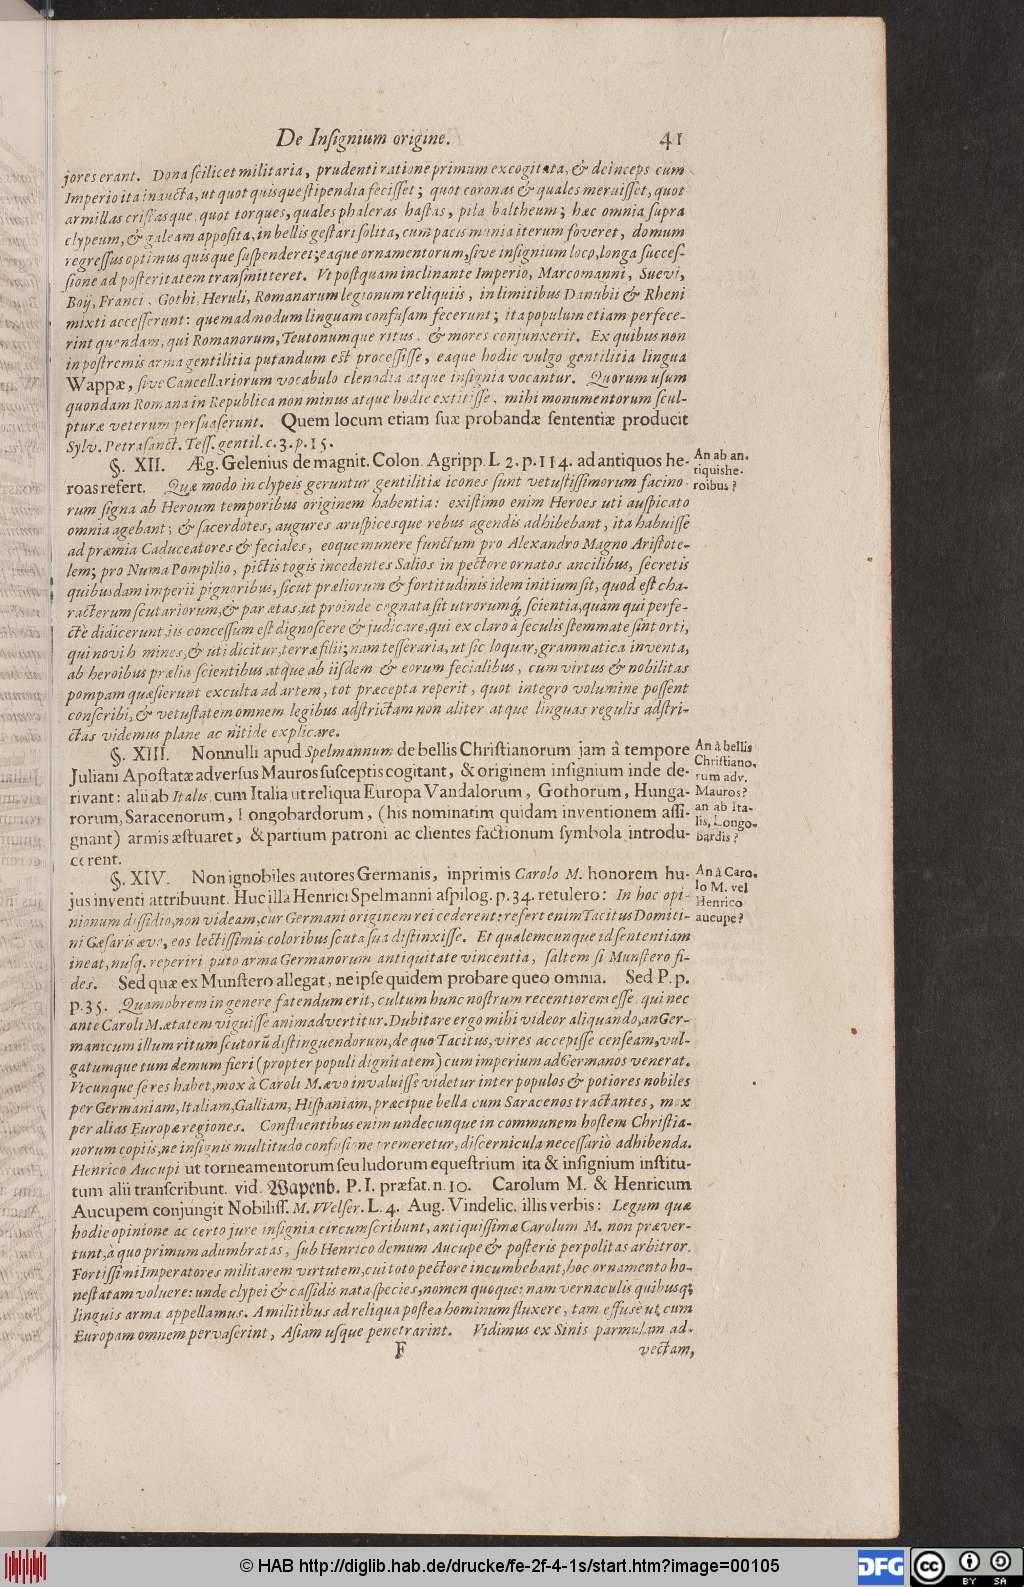 De Inſignium origine. 41
jores erant. Dona ſcilicet militaria, prudenti ratione primum excogitata, & deinceps cum
Imperio ita inaucta, ut quot quisque ſtipendia feciſſet; quot coronas & quales meruiſſet, quot
armillas criſtasque, quot torques, quales phaleras haſtas, pila baltheum; hæc omnia ſupra
clypeum, & galeam appoſita, in bellis geſtari ſolita, cum pacis munia iterum foveret, domum
regreſſus optimus quisque ſuſpenderet; eaque ornamentorum, ſive inſignium loco, longa ſucceſ-
ſione ad poſteritatem tranſmitteret. Ut poſtquam inclinante Imperio, Marcomanni, Suevi,
Boij, Franci, Gothi, Heruli, Romanarum legionum reliquiis, in limitibus Danubii & Rheni
mixti acceſſerunt: quemadmodum linguam confuſam fecerunt; ita populum etiam perfece-
rint quendam, qui Romanorum, Teutonumque ritus, & mores conjunxerit. Ex quibus non
in poſtremis arma gentilitia putandum eſt proceſſiſſe, eaque hodie vulgo gentilitia lingua
Wappæ, ſive Cancellariorum vocabulo clenodia atque inſignia vocantur. Quorum uſum
quondam Romana in Republica non minus atque hodie extitiſſe, mihi monumentorum ſcul-
pturæ veterum perſuaſerunt. Quem locum etiam ſuæ probandæ ſententiæ producit
Sylv. Petraſanct. Teſſ. gentil. c. 3. p. 15.
§. XII. Æg. Gelenius de magnit. Colon. Agripp. L 2. p. 114. ad antiquos he-
An ab an-
tiquis he-
roibus?
roas refert. Quæ modo in clypeis geruntur gentilitiæ icones ſunt vetuſtiſſimorum facino-
rum ſigna ab Heroum temporibus originem habentia: exiſtimo enim Heroes uti auſpicato
omnia agebant; & ſacerdotes, augures aruſpicesque rebus agendis adhibebant, ita habuiſſe
ad præmia Caduceatores & feciales, eoque munere functum pro Alexandro Magno Ariſtote-
lem; pro Numa Pompilio, pictis togis incedentes Salios in pectore ornatos ancilibus, ſecretis
quibusdam imperii pignoribus, ſicut præliorum & fortitudinis idem initium ſit, quod eſt cha-
racterum ſcutariorum, & par ætas, ut proinde cognata ſit utrorumq; ſcientia, quam qui perfe-
ctè didicerunt, iis conceſſum eſt dignoſcere & judicare, qui ex claro à ſeculis ſtemmate ſint orti,
qui novi homines, & uti dicitur, terræ filii; nam teſſeraria, ut ſic loquar, grammatica inventa,
ab heroibus prælia ſcientibus atque ab iiſdem & eorum fecialibus, cum virtus & nobilitas
pompam quæſierunt exculta ad artem, tot præcepta reperit, quot integro volumine poſſent
conſcribi, & vetuſtatem omnem legibus adſtrictam non aliter atque linguas regulis adſtri-
ctas videmus plane ac nitide explicare.
§. XIII. Nonnulli apud Spelmannum de bellis Chriſtianorum jam â tempore
An à bellis
Chriſtiano-
rum adv.
Mauros?
an ab Ita-
lis, Longo-
bardis?
Juliani Apoſtatæ adverſus Mauros ſuſceptis cogitant, & originem inſignium inde de-
rivant: alii ab Italis, cum Italia ut reliqua Europa Vandalorum, Gothorum, Hunga-
rorum, Saracenorum, Longobardorum, (his nominatim quidam inventionem aſſi-
gnant) armis æſtuaret, & partium patroni ac clientes factionum ſymbola introdu-
cerent.
§. XIV. Non ignobiles autores Germanis, inprimis Carolo M. honorem hu-
An à Caro-
lo M. vel
Henrico
aucupe?
jus inventi attribuunt. Huc illa Henrici Spelmanni aſpilog. p. 34. retulero: In hoc opi-
nionum diſſidio, non videam, cur Germani originem rei cederent: refert enim Tacitus Domiti-
ni Cæſaris ævo, eos lectiſſimis coloribus ſcuta ſua diſtinxiſſe. Et qualemcunque id ſententiam
ineat, nuſq. reperiri puto arma Germanorum antiquitate vincentia, ſaltem ſi Munſtero fi-
des. Sed quæ ex Munſtero allegat, ne ipſe quidem probare queo omnia. Sed P. p.
p. 35. Quamobrem in genere fatendum erit, cultum hunc noſtrum recentiorem eſſe, qui nec
ante Caroli M. ætatem viguiſſe animadvertitur. Dubitare ergo mihi videor aliquando, an Ger-
manicum illum ritum ſcutorũ diſtinguendorum, de quo Tacitus, vires accepiſſe cenſeam, vul-
gatumque tum demum fieri (propter populi dignitatem) cum imperium ad Germanos venerat.
Utcunque ſe res habet, mox à Caroli M. ævo invaluiſſe videtur inter populos & potiores nobiles
per Germaniam, Italiam, Galliam, Hiſpaniam, præcipue bella cum Saracenos tractantes, mox
per alias Europæ regiones. Confluentibus enim undecunque in communem hoſtem Chriſtia-
norum copiis, ne inſignis multitudo confuſione tremeretur, diſcernicula neceſſariò adhibenda.
Henrico Aucupi ut torneamentorum ſeu ludorum equeſtrium ita & inſignium inſtitu-
tum alii tranſcribunt. vid. Wapenb. P. I. præfat. n. 10. Carolum M. & Henricum
Aucupem conjungit Nobiliſſ. M. Welſer. L. 4. Aug. Vindelic. illis verbis: Legum quæ
hodie opinione ac certo jure inſignia circumſcribunt, antiquiſſimæ Carolum M. non præver-
tunt, à quo primum adumbratas, ſub Henrico demum Aucupe & poſteris perpolitas arbitror.
Fortiſſimi Imperatores militarem virtutem, cui toto pectore incumbebant, hoc ornamento ho-
neſtatam voluere: unde clypei & caſſidis nata ſpecies, nomen quoque: nam vernaculis quibusq;
linguis arma appellamus. A militibus ad reliqua poſtea hominum fluxere, tam effuſe ut cum
Europam omnem pervaſerint, Aſiam uſque penetrarint. Vidimus ex Sinis parmulam ad-
F vectam,
© HAB http://diglib.hab.de/drucke/fe-2f-4-1s/start.htm?image=00105
DFG
cc BY SA